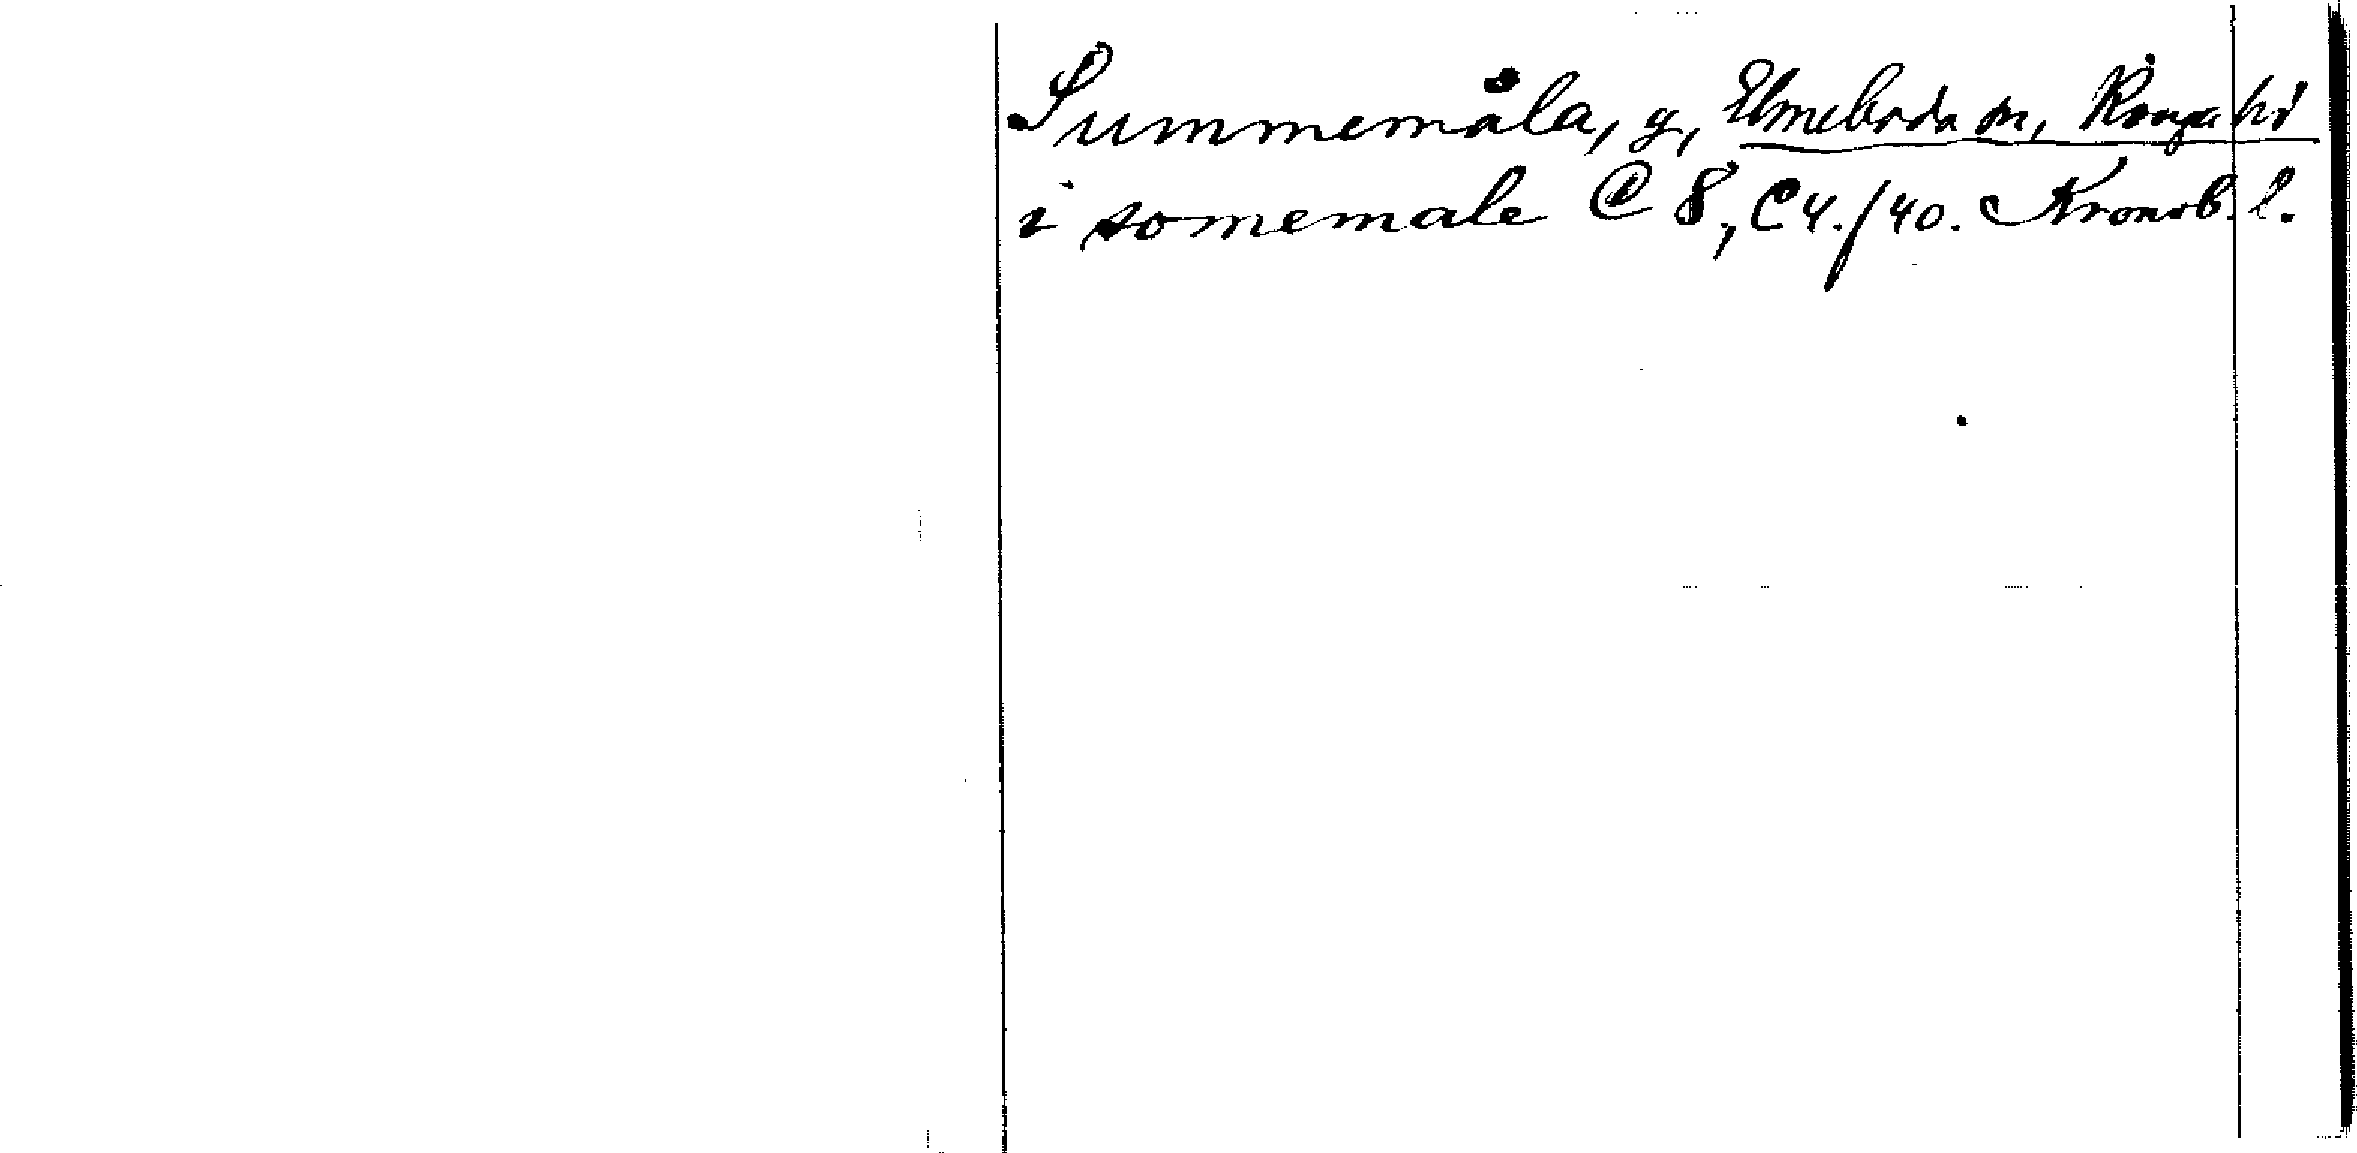 Summemåla, g, Elmeboda sn, Konga hd
i somemale C 8, C4./40. Kronob. l.